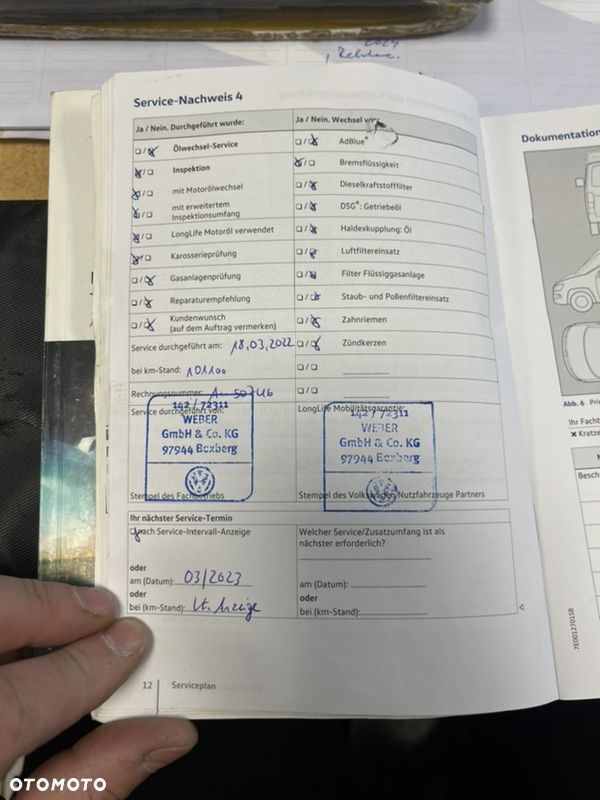 2024
Service-Nachweis 4
Ja / Nein. Durchgeführt wurde:
Ölwechsel-Service
Inspektion
mit Motorölwechsel
mit erweitertem
Inspektionsumfang
LongLife Motoröl verwendet
Karosserieprüfung
Gasanlagenprüfung
Reparaturempfehlung
Kundenwunsch
(auf dem Auftrag vermerken)
Service durchgeführt am: 18.03.2022
bei km-Stand: 101100
Rechnungsnummer:
Service durchgeführt von:
142 / 72311
WEBER
GmbH & Co. KG
97944 Boxberg
Stempel des Fachbetriebs
Ja / Nein. Wechsel von:
AdBlue®
Bremsflüssigkeit
Dieselkraftstofffilter
DSG®: Getriebeöl
Haldexkupplung: Öl
Luftfiltereinsatz
Filter Flüssiggasanlage
Staub- und Pollenfiltereinsatz
Zahnriemen
Zündkerzen
LongLife Mobilitätsgarantie:
142 / 72311
WEBER
GmbH & Co. KG
97944 Boxberg
Stempel des Volkswagen Nutzfahrzeuge Partners
Ihr nächster Service-Termin
nach Service-Intervall-Anzeige
oder
am (Datum): 03/2023
oder
bei (km-Stand): lt. Anzeige
Welcher Service/Zusatzumfang ist als
nächster erforderlich?
am (Datum):
oder
bei (km-Stand):
12 Serviceplan
Dokumentation
Abb. 6
Ihr Fachb
Kratze
Besch
7E0012701SB
OTOMOTO